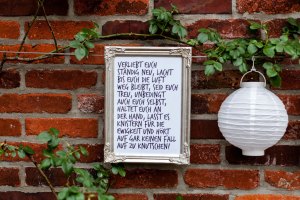 VERLIEBT EUCH
STÄNDIG NEU, LACHT
BIS EUCH DIE LUFT
WEG BLEIBT, SEID EUCH
TREU, UNBEDINGT
AUCH EUCH SELBST,
HALTET EUCH AN
DER HAND, LASST ES
KNISTERN FÜR DIE
EWIGKEIT UND HÖRT
AUF GAR KEINEN FALL
AUF ZU KNUTSCHEN!